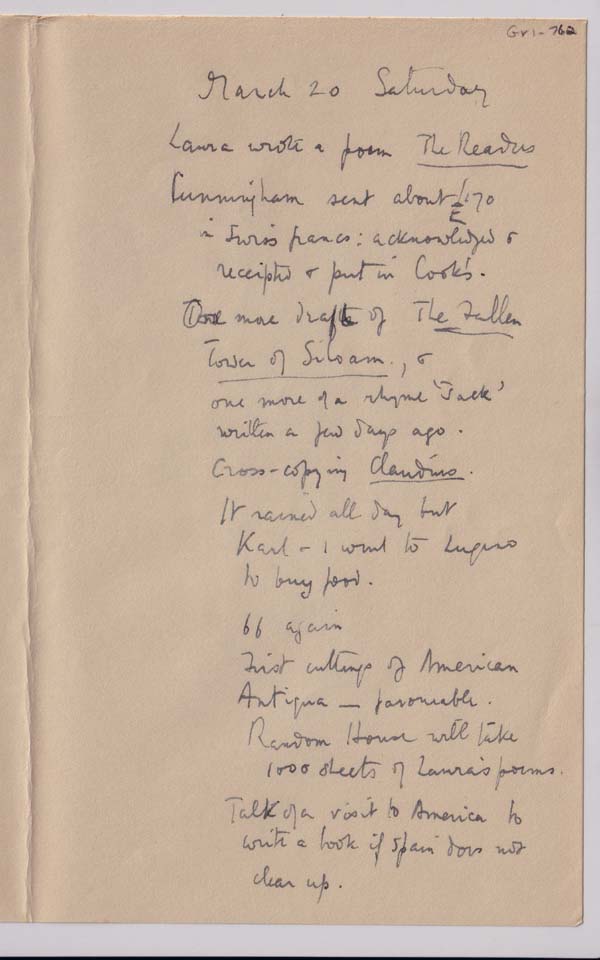 Gr1-762
March 20 Saturday
Laura wrote a poem The Readers
Cunningham sent about £170
in Swiss francs: acknowledged &
receipted & put in Cook's.
One more draft of The Fallen
Tower of Siloam., &
one more of a rhyme 'Jack'
written a few days ago.
Cross-copying Claudius.
It rained all day but
Karl & I went to Lugano
to buy food.
66 again
First cuttings of American
Antigua — favourable.
Random House will take
1000 sheets of Laura's poems.
Talk of a visit to America to
write a book if Spain does not
clear up.